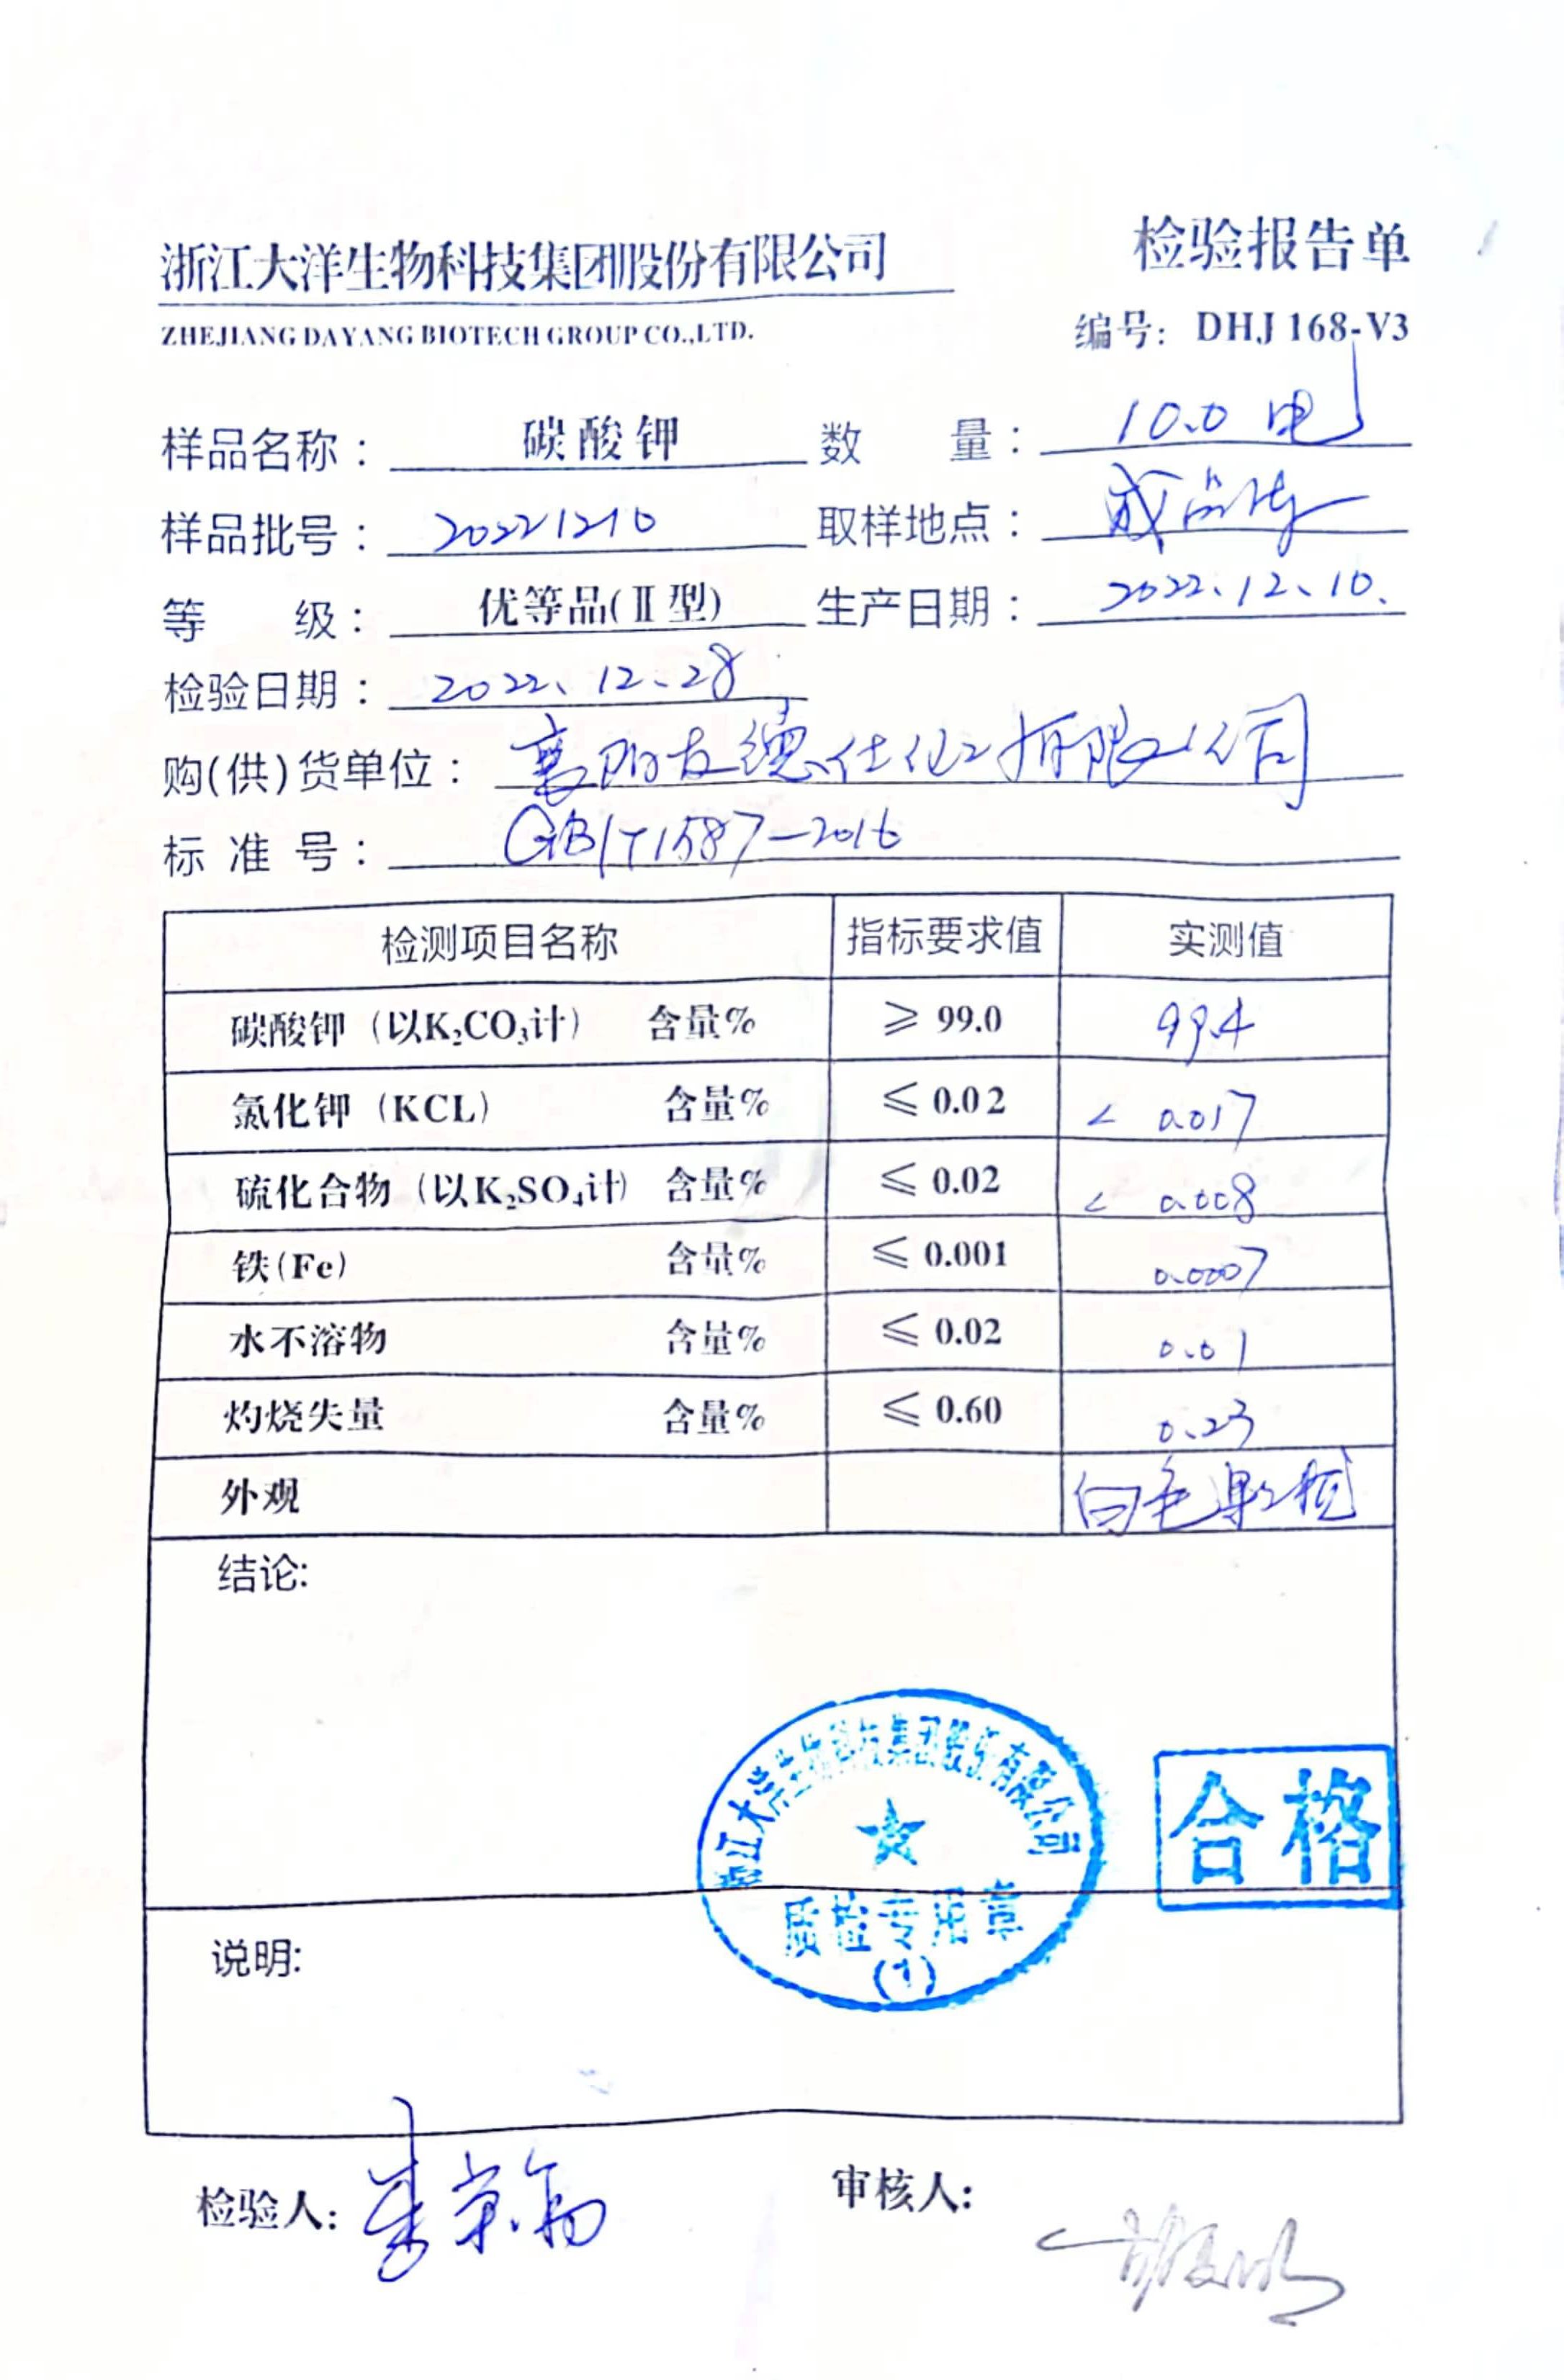 浙江大洋生物科技集团股份有限公司 检验报告单
ZHEJIANG DAYANG BIOTECH GROUP CO.,LTD. 编号: DHJ 168-V3
样品名称: 碳酸钾 数 量: 10.0 吨
样品批号: 20221210 取样地点: 成品库
等 级: 优等品(Ⅱ型) 生产日期: 2022.12.10.
检验日期: 2022.12.28
购(供)货单位: 襄阳友德仕化工有限公司
标 准 号: GB/T1587-2016
检测项目名称 指标要求值 实测值
碳酸钾 (以K₂CO₃计) 含量% ≥ 99.0 99.4
氯化钾 (KCL) 含量% ≤ 0.02 < 0.017
硫化合物 (以K₂SO₄计) 含量% ≤ 0.02 < 0.008
铁(Fe) 含量% ≤ 0.001 0.0007
水不溶物 含量% ≤ 0.02 0.01
灼烧失量 含量% ≤ 0.60 0.23
外观 白色颗粒
结论:
浙江大洋生物科技集团股份有限公司
合格
质检专用章
(1)
说明:
检验人: 审核人: